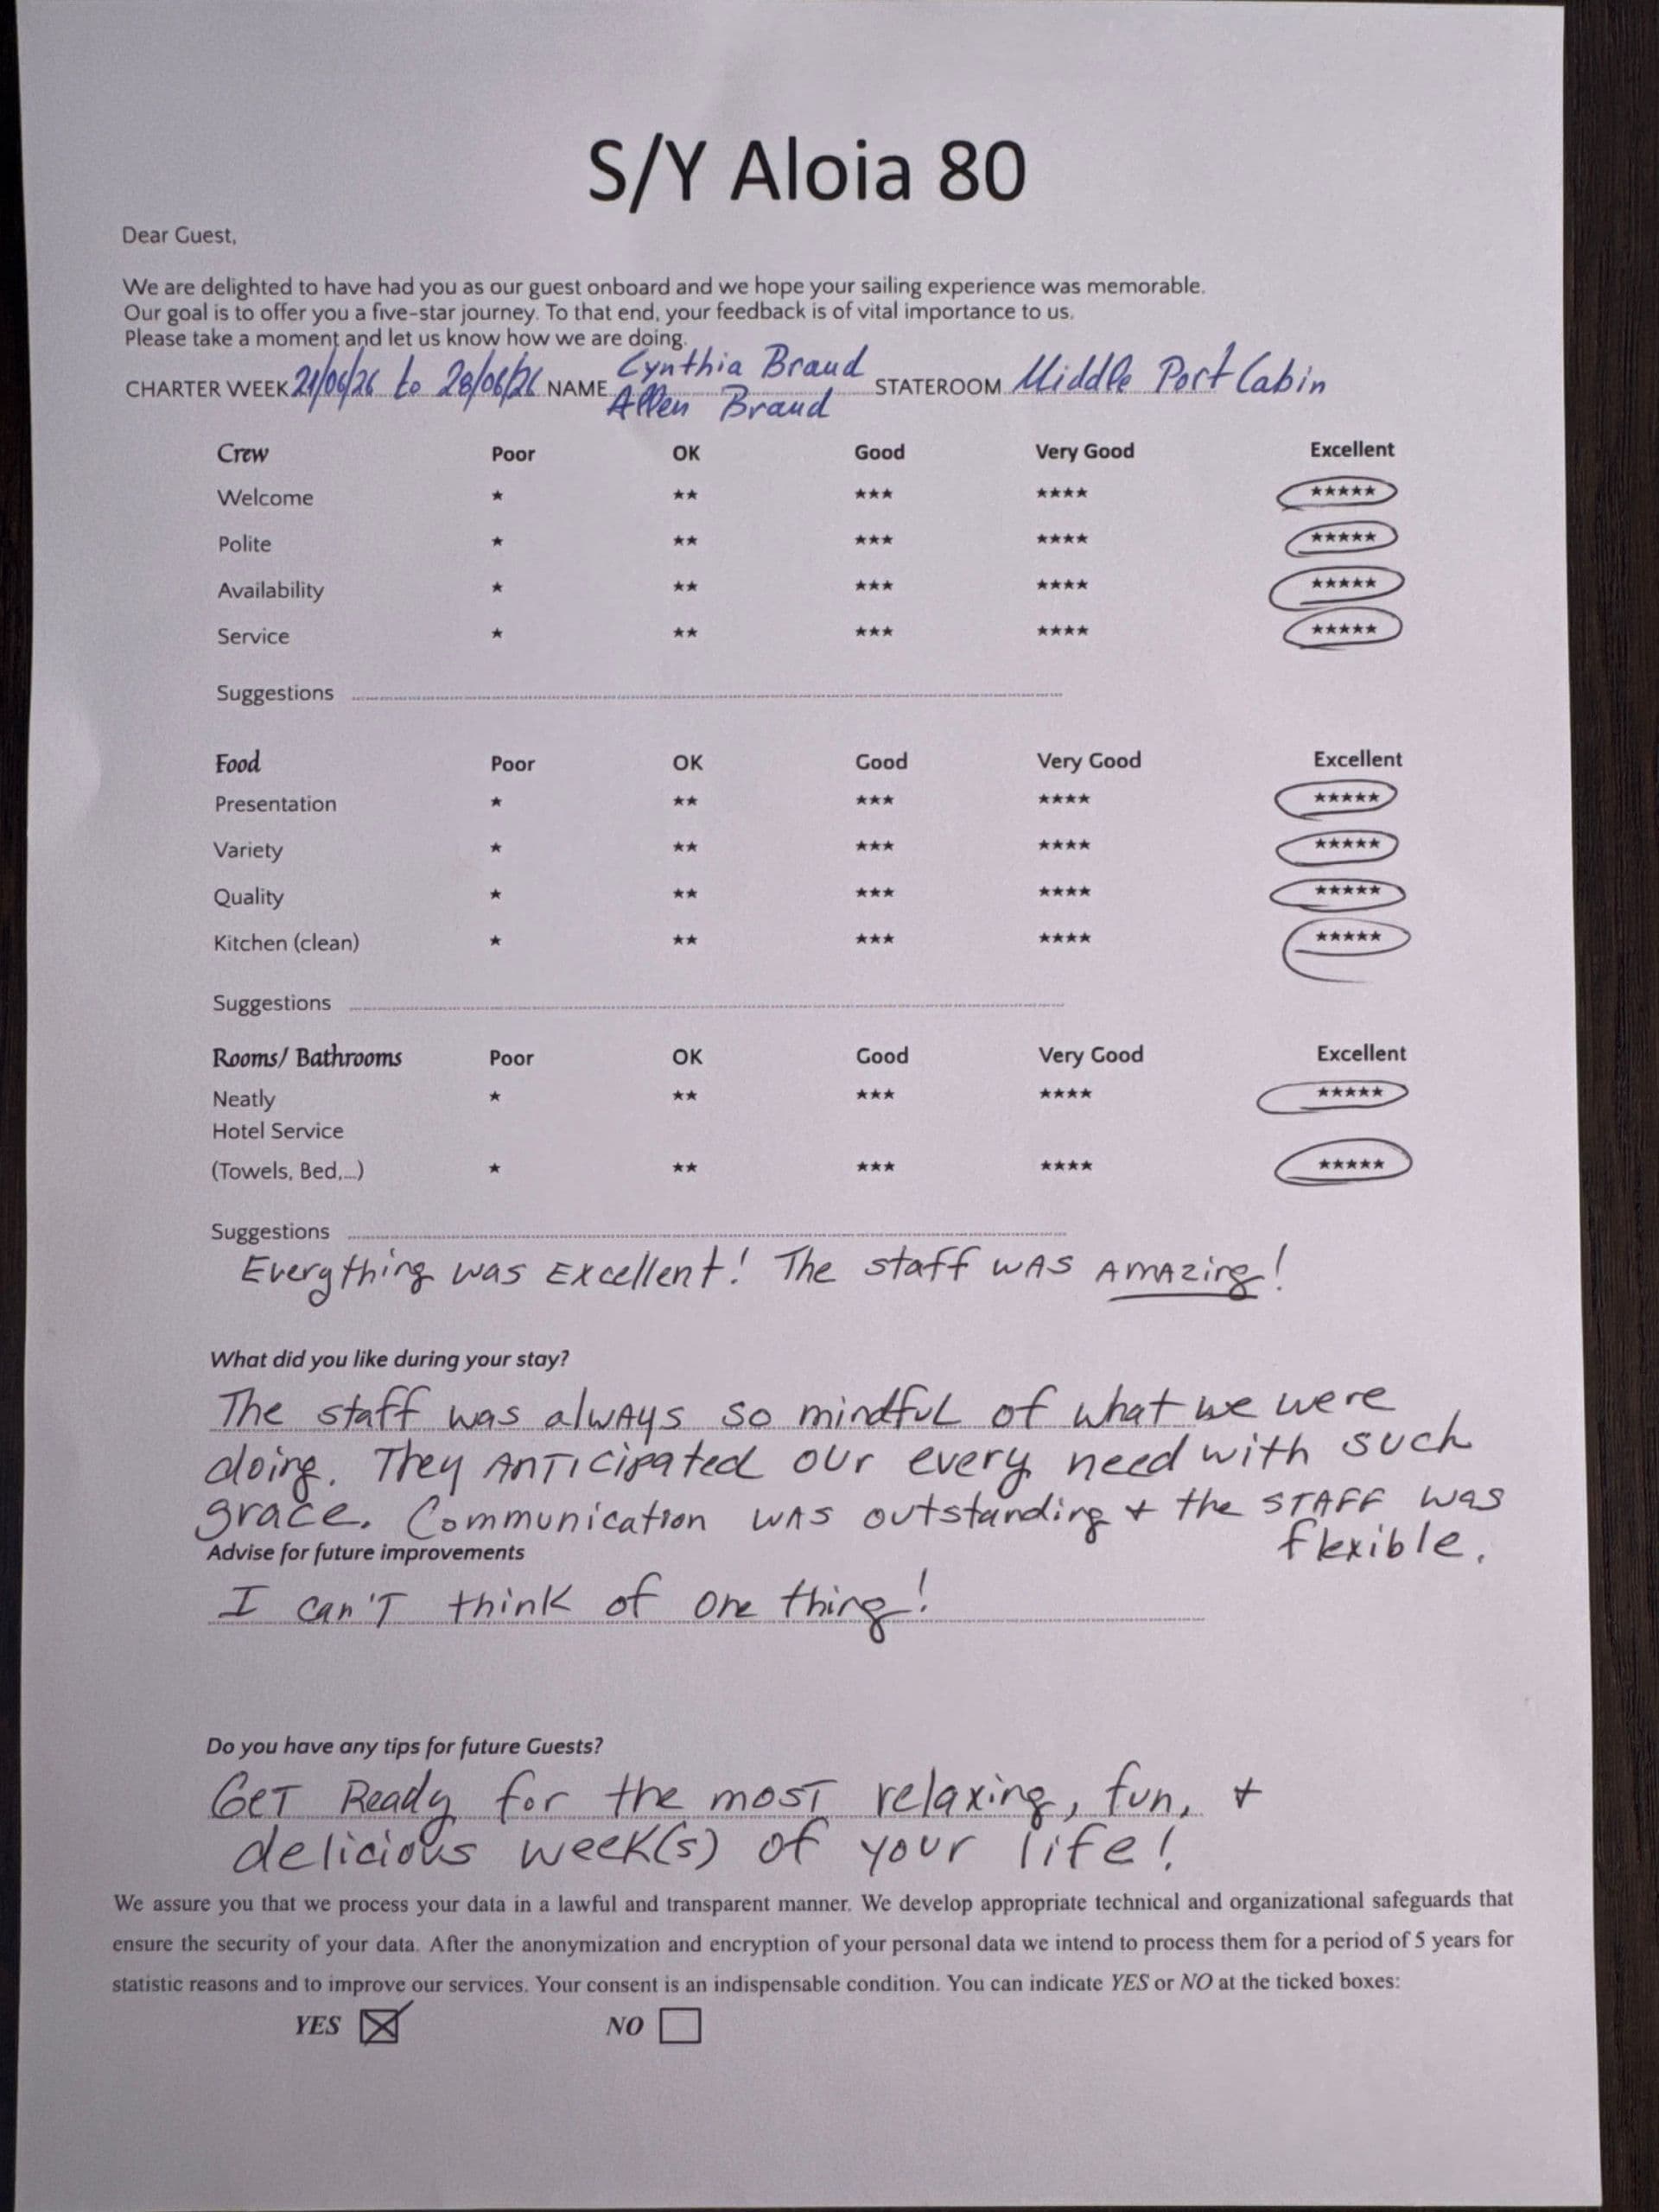 S/Y Aloia 80
Dear Guest,
We are delighted to have had you as our guest onboard and we hope your sailing experience was memorable.
Our goal is to offer you a five-star journey. To that end, your feedback is of vital importance to us.
Please take a moment and let us know how we are doing.
CHARTER WEEK 21/06/26 to 28/06/26 NAME Cynthia Braud STATEROOM Middle Port Cabin
Allen Braud
Crew Poor OK Good Very Good Excellent
Welcome ★ ★★ ★★★ ★★★★ ★★★★★
Polite ★ ★★ ★★★ ★★★★ ★★★★★
Availability ★ ★★ ★★★ ★★★★ ★★★★★
Service ★ ★★ ★★★ ★★★★ ★★★★★
Suggestions
Food Poor OK Good Very Good Excellent
Presentation ★ ★★ ★★★ ★★★★ ★★★★★
Variety ★ ★★ ★★★ ★★★★ ★★★★★
Quality ★ ★★ ★★★ ★★★★ ★★★★★
Kitchen (clean) ★ ★★ ★★★ ★★★★ ★★★★★
Suggestions
Rooms/ Bathrooms Poor OK Good Very Good Excellent
Neatly ★ ★★ ★★★ ★★★★ ★★★★★
Hotel Service
(Towels, Bed,...) ★ ★★ ★★★ ★★★★ ★★★★★
Suggestions
Everything was Excellent! The staff was AMAzing!
What did you like during your stay?
The staff was always so mindful of what we were
doing. They ANTicipated our every need with such
grace. Communication was outstanding + the STAFF was
flexible.
Advise for future improvements
I can'T think of one thing!
Do you have any tips for future Guests?
GeT Ready for the mosT relaxing, fun, +
delicious week(s) of your life!
We assure you that we process your data in a lawful and transparent manner. We develop appropriate technical and organizational safeguards that
ensure the security of your data. After the anonymization and encryption of your personal data we intend to process them for a period of 5 years for
statistic reasons and to improve our services. Your consent is an indispensable condition. You can indicate YES or NO at the ticked boxes:
YES NO